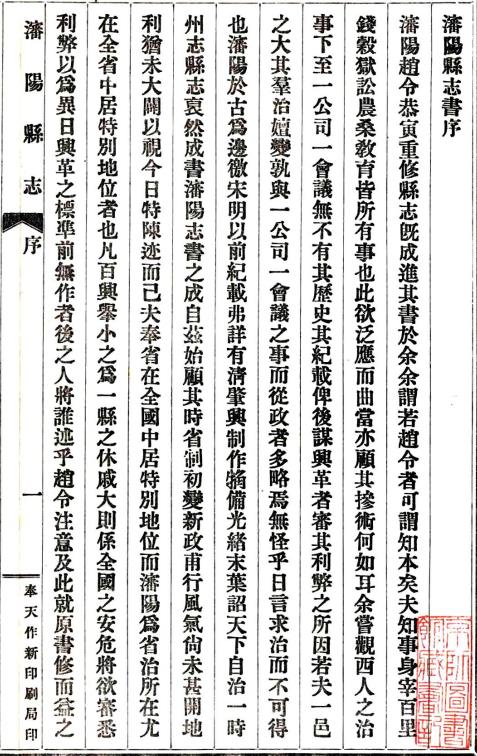 瀋陽縣志書序
瀋陽趙令恭寅重修縣志旣成進其書於余余謂若趙令者可謂知本矣夫知事身宰百里
錢穀獄訟農桑敎育皆所有事也此欲泛應而曲當亦顧其摻術何如耳余嘗觀西人之治
事下至一公司一會議無不有其歷史其紀載俾後謀興革者審其利弊之所因若夫一邑
之大其羣治嬗變孰與一公司一會議之事而從政者多略焉無怪乎日言求治而不可得
也瀋陽於古爲邊徼宋明以前紀載弗詳有淸肇興制作犓備光緖末葉詔天下自治一時
州志縣志裒然成書瀋陽志書之成自茲始顧其時省制初變新政甫行風氣尙未甚開地
利猶未大闢以視今日特陳迹而已夫奉省在全國中居特別地位而瀋陽爲省治所在尤
在全省中居特別地位者也凡百興舉小之爲一縣之休戚大則係全國之安危將欲審悉
利弊以爲異日興革之標準前無作者後之人將誰述乎趙令注意及此就原書修而益之
瀋陽縣志
序
一
奉天作新印刷局印